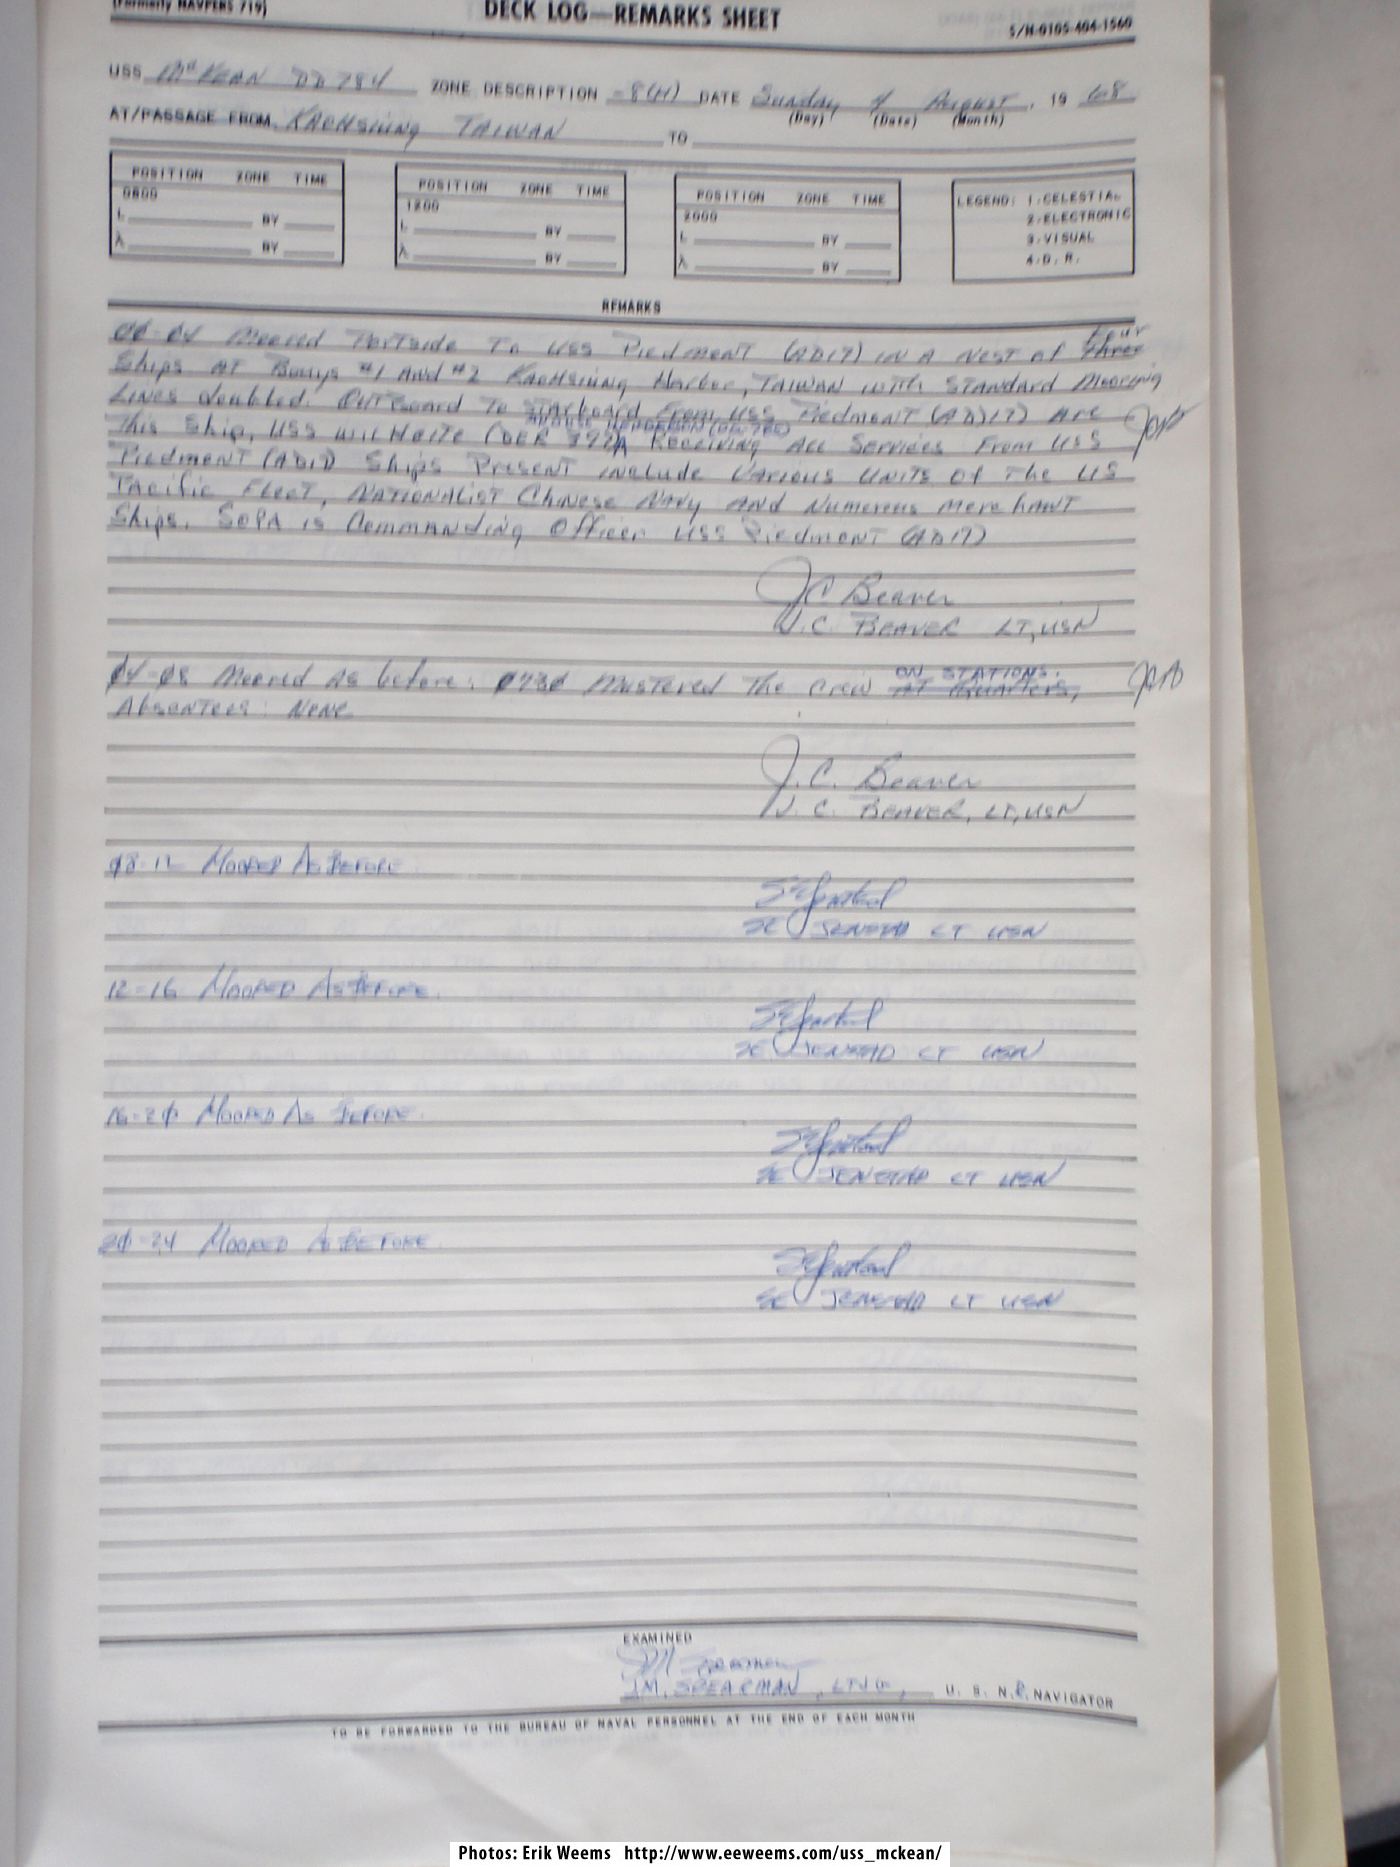 (Formerly NAVPERS 719)
DECK LOG—REMARKS SHEET
S/N-0105-404-1560
USS McKEAN DD 784 ZONE DESCRIPTION -8(H) DATE Sunday 4 August, 19 68
(Day) (Date) (Month)
AT/PASSAGE FROM KAOHSIUNG TAIWAN TO
POSITION ZONE TIME
0800
L BY
λ BY
POSITION ZONE TIME
1200
L BY
λ BY
POSITION ZONE TIME
2000
L BY
λ BY
LEGEND: 1-CELESTIAL
2-ELECTRONIC
3-VISUAL
4-D. R.
REMARKS
four
00-04 Moored Portside To USS Piedmont (AD17) IN A Nest of three
Ships AT Bouys #1 AND #2 KAOHSIUNG Harbor, TAIWAN with STANDARD Mooring
Lines doubled. OUTBoard To Starboard From USS Piedmont (AD17) Are
HENDERSON (DD 785)
This Ship, USS WILHOITE (DER 397) Receiving ALL Services From USS
Piedmont (AD17) Ships Present include Various UNITS of The US
Pacific Fleet, NATIONALIST Chinese Navy AND Numerous merchant
Ships. SOPA is Commanding Officer USS Piedmont (AD17)
JC Beaver
J. C. BEAVER LT, USN
ON STATIONS.
04-08 Moored As before. 0730 Mustered The Crew AT Quarters,
Absentees: None
J. C. Beaver
J. C. BEAVER, LT, USN
08-12 MOORED AS BEFORE.
SE Jenstad
SE JENSTAD LT USN
12-16 MOORED AS BEFORE.
SE Jenstad
SE JENSTAD LT USN
16-20 MOORED AS BEFORE.
SE Jenstad
SE JENSTAD LT USN
20-24 MOORED AS BEFORE
SE Jenstad
SE JENSTAD LT USN
EXAMINED
JM Spearman
J.M. SPEARMAN, LTJG, U. S. N.R. NAVIGATOR
TO BE FORWARDED TO THE BUREAU OF NAVAL PERSONNEL AT THE END OF EACH MONTH
Photos: Erik Weems http://www.eeweems.com/uss_mckean/